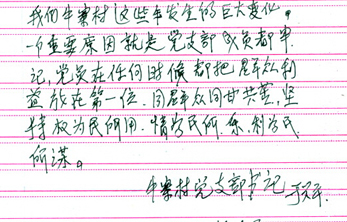 我们牛寨村这些年发生的巨大变化,
一个重要原因就是党支部成员都牢
记,党员在任何时候都把群众利
益放在第一位.同群众同甘共苦,坚
持权为民所用.情为民所.系,利为民
所谋。
牛寨村党支部书记